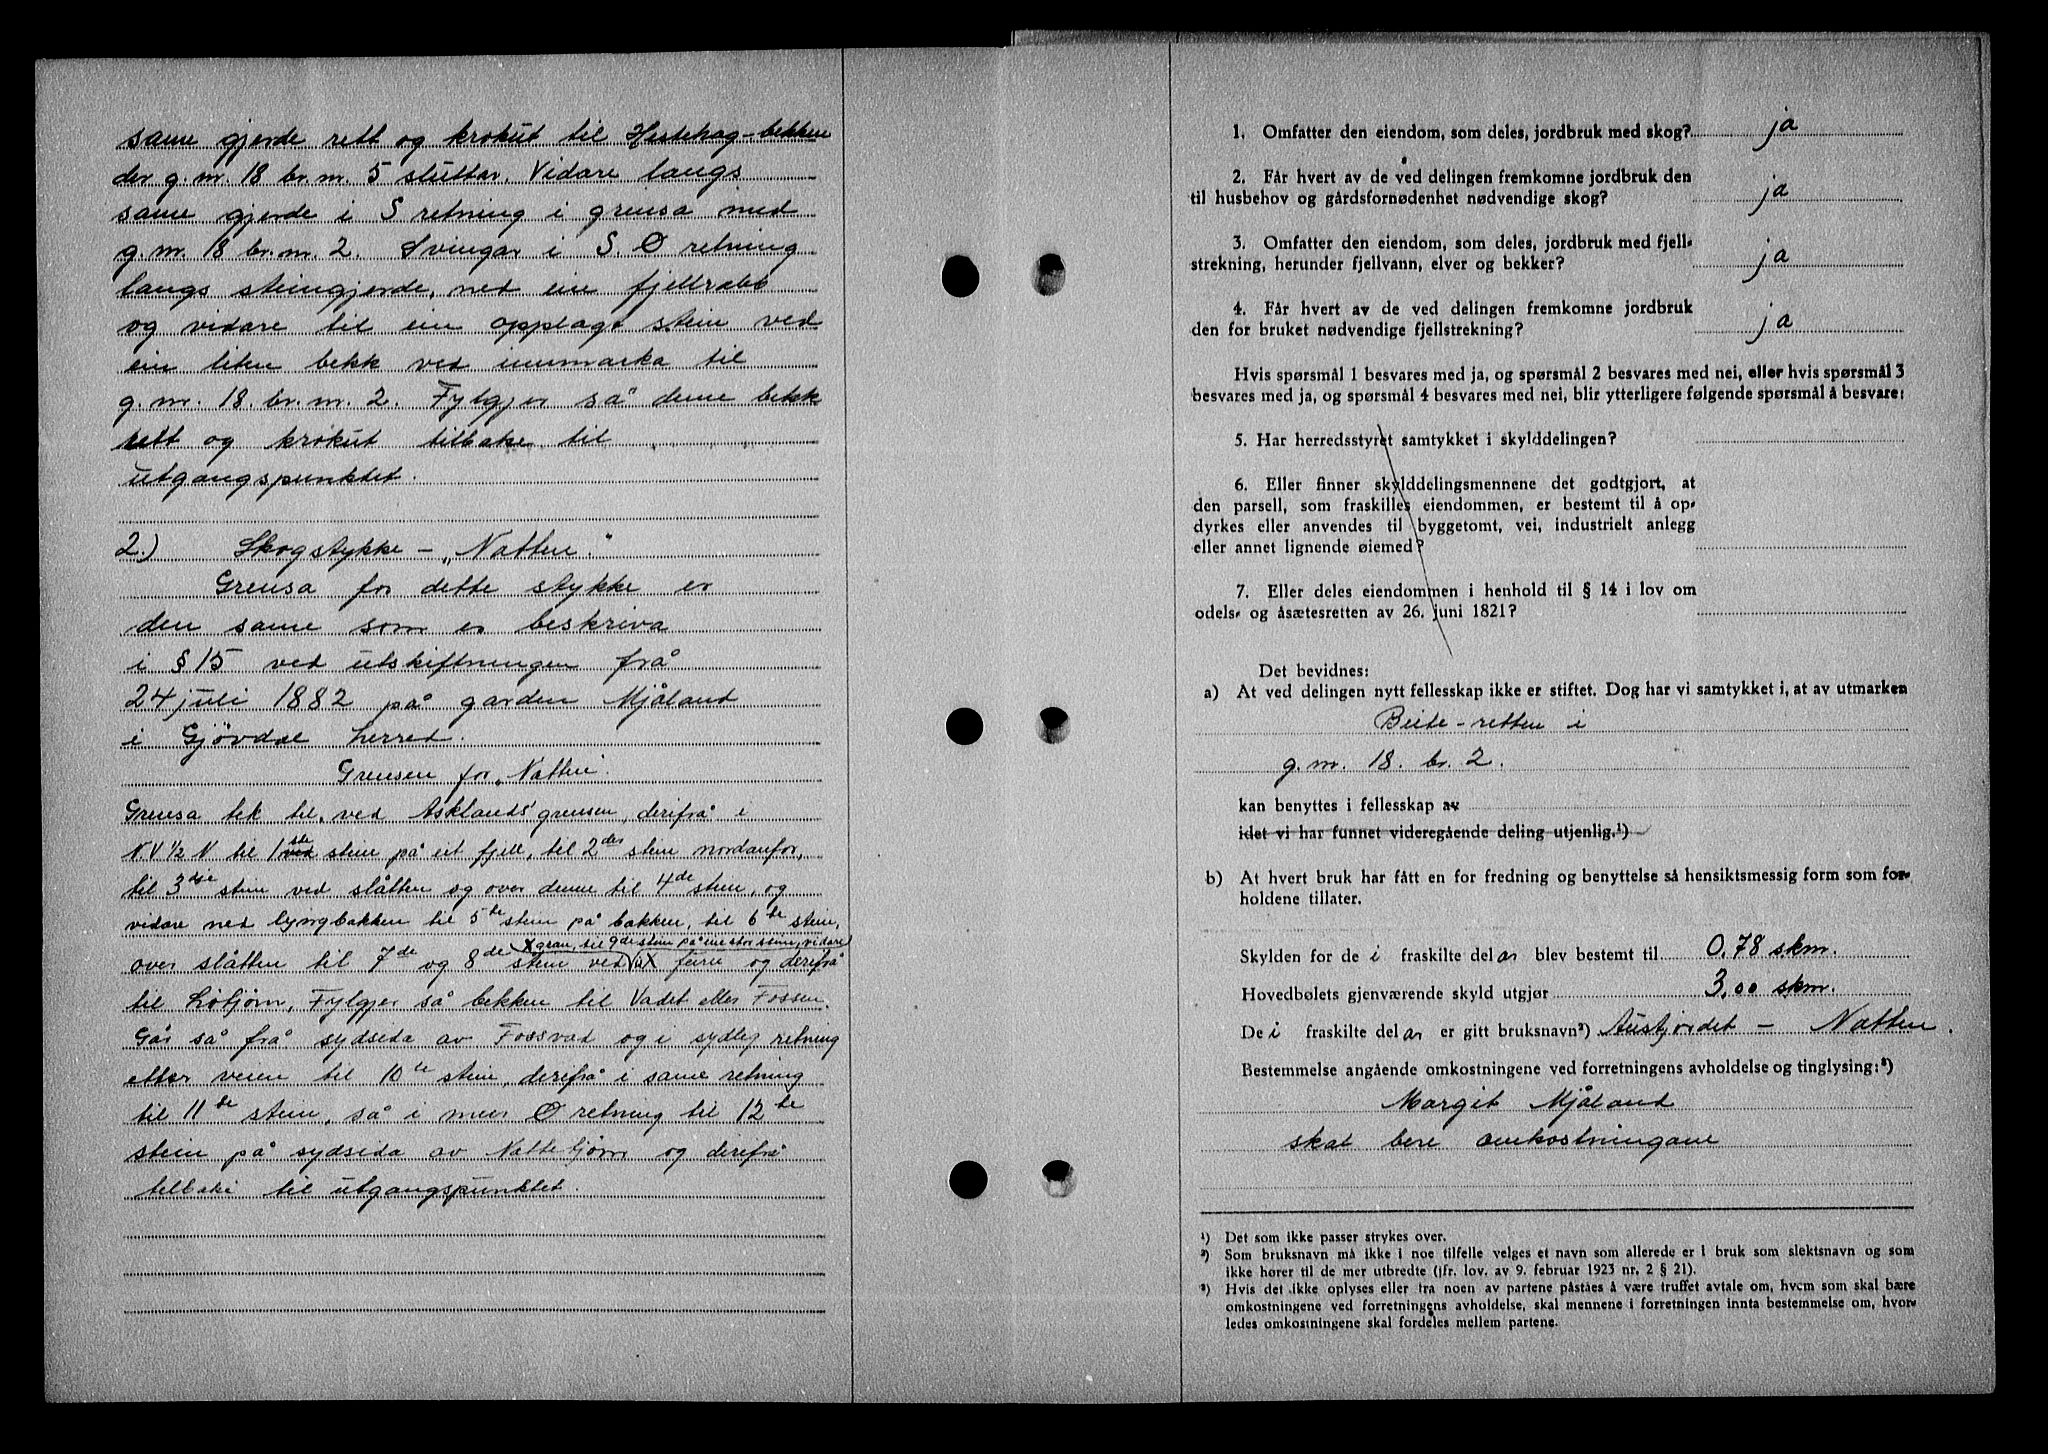 same gjerde rett og krokut til Hestehag-bekken
der g.nr. 18 br.nr. 5 sluttar. Vidare langs
same gjerde i S retning i grensa med
g.nr. 18 br.nr. 2. Svingar i S.Ø retning
langs steingjerde, ned ein fjellrabb
og vidare til ein opplagt stein ved
ein liten bekk ved innmarka til
g.nr. 18. br.nr. 2. Fylgjer så denne bekk
rett og krokut tilbake til
utgangspunktet.
2.) Skogstykke - „Natten".
Grensa for dette stykke er
den same som er beskriva
i § 15 ved utskiftningen frå
24 juli 1882 på garden Mjåland
i Gjövdal herred.
Grensen for „Natten".
Grensa tek til, ved Asklands grensen, derifrå i
N.V ½ N til 1ste ved stein på eit fjell, til 2den stein nordanfor,
til 3dje stein ved slåtten og over denne til 4de stein, og
vidare ned lyngbakken til 5te stein på bakken, til 6te stein,
x gran, til 9de stein på ein stor stein, vidare
over slåtten til 7de og 8de stein ved ei x furu og derifrå
til Lötjörn, Fylgjer så bekken til Vadet eller Fossen.
Går så frå sydsida av Fossvad og i sydleg retning
etter veien til 10de stein, derifrå i same retning
til 11te stein, så i meir Ø retning til 12te
stein på sydsida av Nattetjörn og derifrå
tilbake til utgangspunktet.
1. Omfatter den eiendom, som deles, jordbruk med skog? ja
2. Får hvert av de ved delingen fremkomne jordbruk den
til husbehov og gårdsfornødenhet nødvendige skog? ja
3. Omfatter den eiendom, som deles, jordbruk med fjell-
strekning, herunder fjellvann, elver og bekker? ja
4. Får hvert av de ved delingen fremkomne jordbruk
den for bruket nødvendige fjellstrekning? ja
Hvis spørsmål 1 besvares med ja, og spørsmål 2 besvares med nei, eller hvis spørsmål 3
besvares med ja, og spørsmål 4 besvares med nei, blir ytterligere følgende spørsmål å besvare:
5. Har herredsstyret samtykket i skylddelingen?
6. Eller finner skylddelingsmennene det godtgjort, at
den parsell, som fraskilles eiendommen, er bestemt til å op-
dyrkes eller anvendes til byggetomt, vei, industrielt anlegg
eller annet lignende øiemed?
7. Eller deles eiendommen i henhold til § 14 i lov om
odels- og åsætesretten av 26. juni 1821?
Det bevidnes:
a) At ved delingen nytt fellesskap ikke er stiftet. Dog har vi samtykket i, at av utmarken
Beite-retten i
g.nr. 18. br. 2.
kan benyttes i fellesskap av
idet vi har funnet videregående deling utjenlig.¹)
b) At hvert bruk har fått en for fredning og benyttelse så hensiktsmessig form som for-
holdene tillater.
Skylden for de i fraskilte del ar blev bestemt til 0,78 skm.
Hovedbølets gjenværende skyld utgjør 3,00 skm.
De i fraskilte del ar er gitt bruksnavn²) Austjordet - Natten.
Bestemmelse angående omkostningene ved forretningens avholdelse og tinglysing:³)
Margit Mjåland
skal bere omkostningane
¹) Det som ikke passer strykes over.
²) Som bruksnavn må ikke i noe tilfelle velges et navn som allerede er i bruk som slektsnavn og som
ikke hører til de mer utbredte (jfr. lov. av 9. februar 1923 nr. 2 § 21).
³) Hvis det ikke oplyses eller fra noen av partene påståes å være truffet avtale om, hvem som skal bære
omkostningene ved forretningens avholdelse, skal mennene i forretningen innta bestemmelse om, hvor-
ledes omkostningene skal fordeles mellem partene.